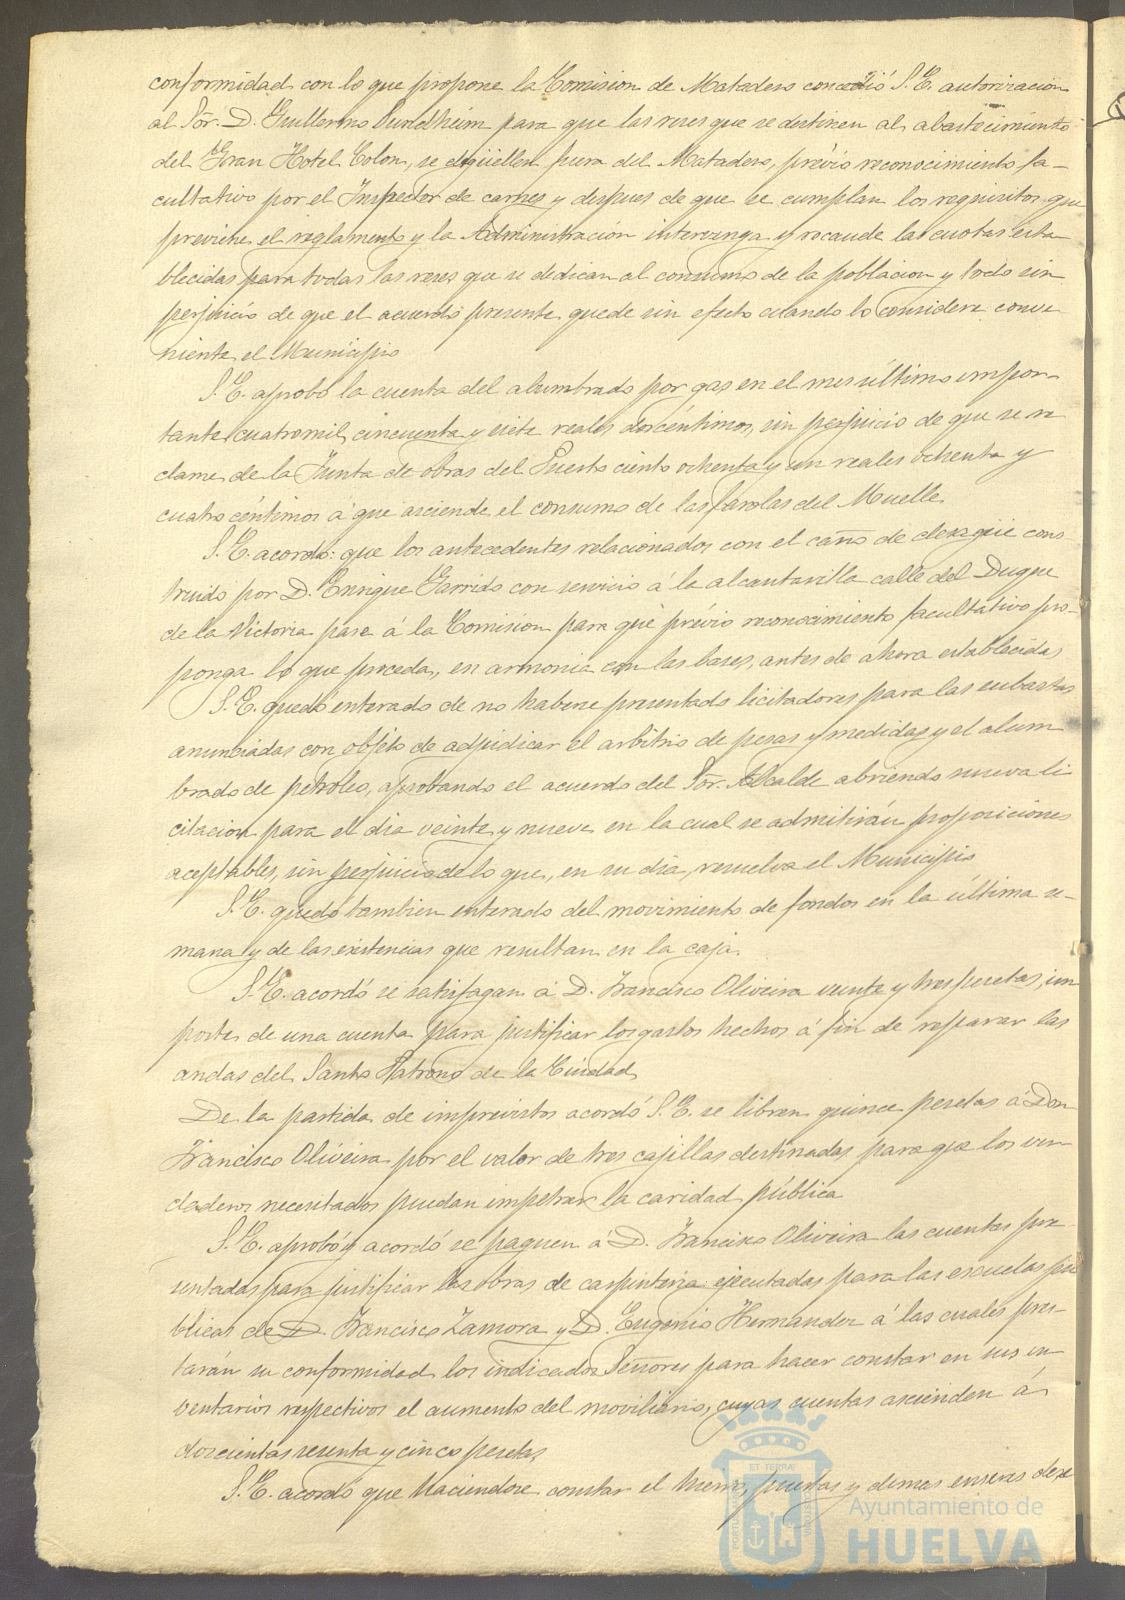 conformidad con lo que propone la Comision de Matadero concedió S.E. autorizacion
al Sôr. D. Guillermo Sundheim para que las reses que se destinen al abastecimiento
del Gran Hotel Colon, se degüellen fuera del Matadero, prévio reconocimiento fa-
cultativo por el Inspector de carnes y despues de que se cumplan los requisitos que
previene el reglamento y la Administración intervenga y recaude las cuotas esta
blecidas para todas las reses que se dedican al consumo de la poblacion y todo sin
perjuicio de que el acuerdo presente quede sin efecto cuando lo considere conve
niente el Municipio
S.E. aprobó la cuenta del alumbrado por gas en el mes último impor-
tante cuatromil cincuenta y siete reales dos céntimos, sin perjuicio de que se re
clame de la Junta de obras del Puerto ciento ochenta y un reales ochenta y
cuatro céntimos á que asciende el consumo de las farolas del Muelle
S.E. acordó: que los antecedentes relacionados con el caño de desagüe cons
truido por D. Enrique Garrido con servicio á la alcantarilla calle del Duque
de la Victoria pase á la Comision para que prévio reconocimiento facultativo pro-
ponga lo que proceda, en armonia con las bases, antes de ahora establecidas
S.E. quedó enterado de no haberse presentado licitadores para las subastas
anunciadas con objeto de adjudicar el arbitrio de pesas y medidas y el alum
brado de petroleo, aprobando el acuerdo del Sôr. Alcalde abriendo nueva li
citacion para el dia veinte y nueve en la cual se admitirán proposiciones
aceptables, sin perjuicio de lo que, en su dia, resuelva el Municipio
S.E. quedó tambien enterado del movimiento de fondos en la última se-
mana y de las existencias que resultan en la caja.
S.E. acordó se satisfagan á D. Francisco Oliveira veinte y tres pesetas, im
porte de una cuenta para justificar los gastos hechos á fin de reparar las
andas del Santo Patrono de la Ciudad
De la partida de imprevistos acordó S.E. se libren quince pesetas á Don
Francisco Oliveira por el valor de tres cajillas destinadas para que los ver-
daderos necesitados puedan impetrar la caridad pública
S.E. aprobó y acordó se paguen á D. Francisco Oliveira las cuentas pre-
sentadas para justificar las obras de carpinteria ejecutadas para las escuelas pú
blicas de D. Francisco Zamora y D. Eugenio Hernandez á las cuales pres-
tarán su conformidad los indicados Señores para hacer constar en sus in-
ventarios respectivos el aumento del moviliario, cuyas cuentas ascienden á
doscientas sesenta y cinco pesetas
S.E. acordó que haciendose constar el hierro, puertas y demas enseres de
Ayuntamiento de
HUELVA